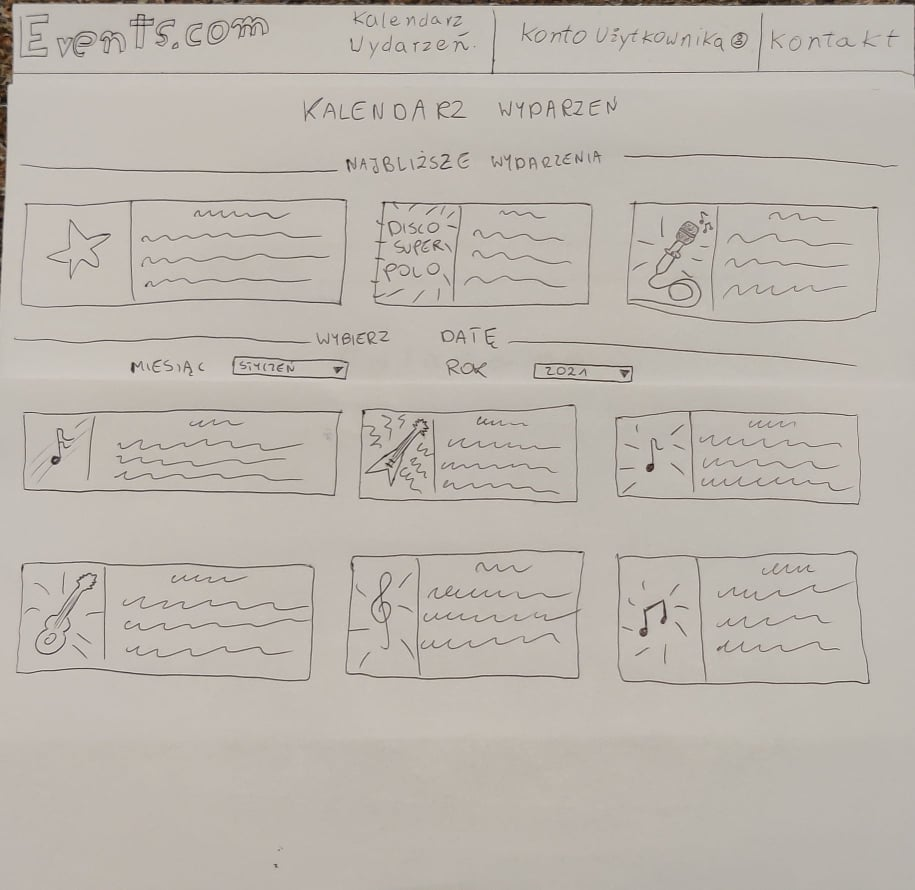 Events.com
Kalendarz
Wydarzeń.
Konto Użytkownika
Kontakt
KALENDARZ WYDARZEŃ
NAJBLIŻSZE WYDARZENIA
DISCO
SUPER
POLO
WYBIERZ DATĘ
MIESIĄC STYCZEŃ ROK 2021